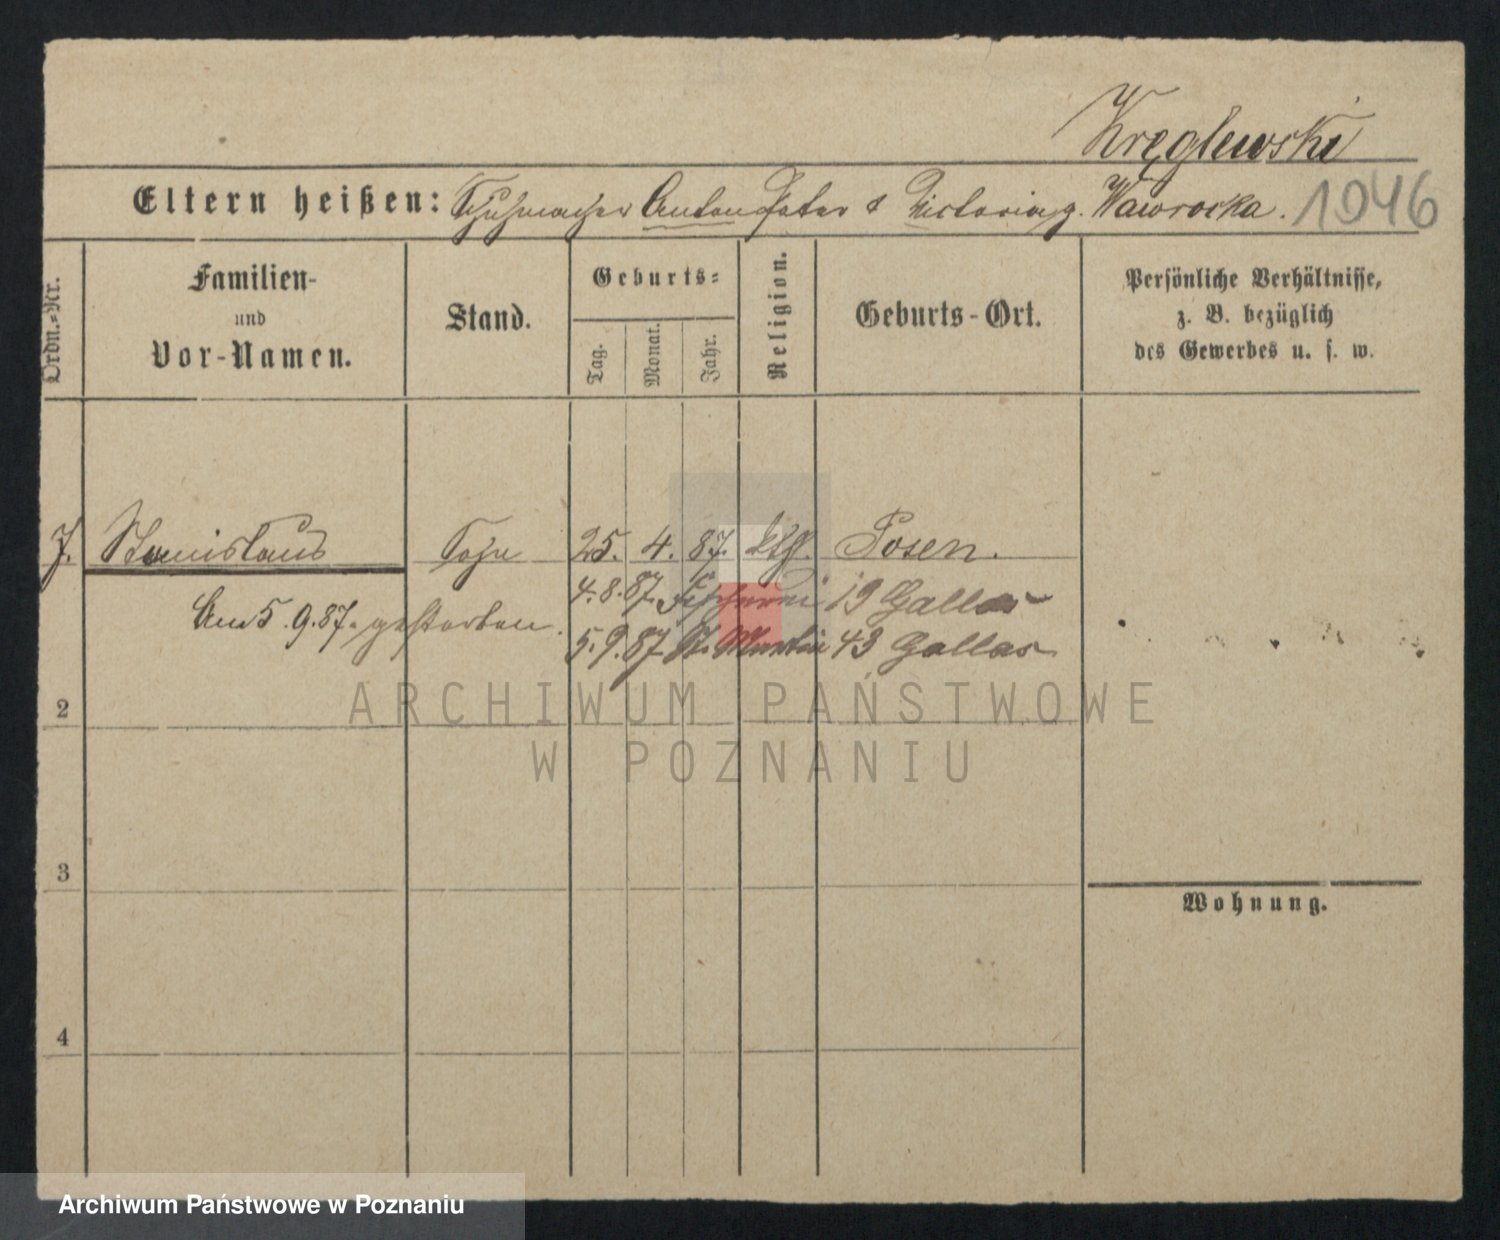 Kręglewski
Eltern heißen: Schuhmacher Anton Peter & Victoria g. Wawrocka. 1046
Ordn.-Nr.
Familien-
und
Vor-Namen.
Stand.
Geburts-
Tag.
Monat.
Jahr.
Religion.
Geburts-Ort.
Persönliche Verhältnisse,
z. B. bezüglich
des Gewerbes u. s. w.
1. Stanislaus Sohn 25. 4. 87. ktl. Posen.
4.8.87. Fischerei 19 Gallas
Am 5.9.87. gestorben.
5.9.87. St. Martin 43 Gallas
2
3
Wohnung.
4
ARCHIWUM PAŃSTWOWE
W POZNANIU
Archiwum Państwowe w Poznaniu